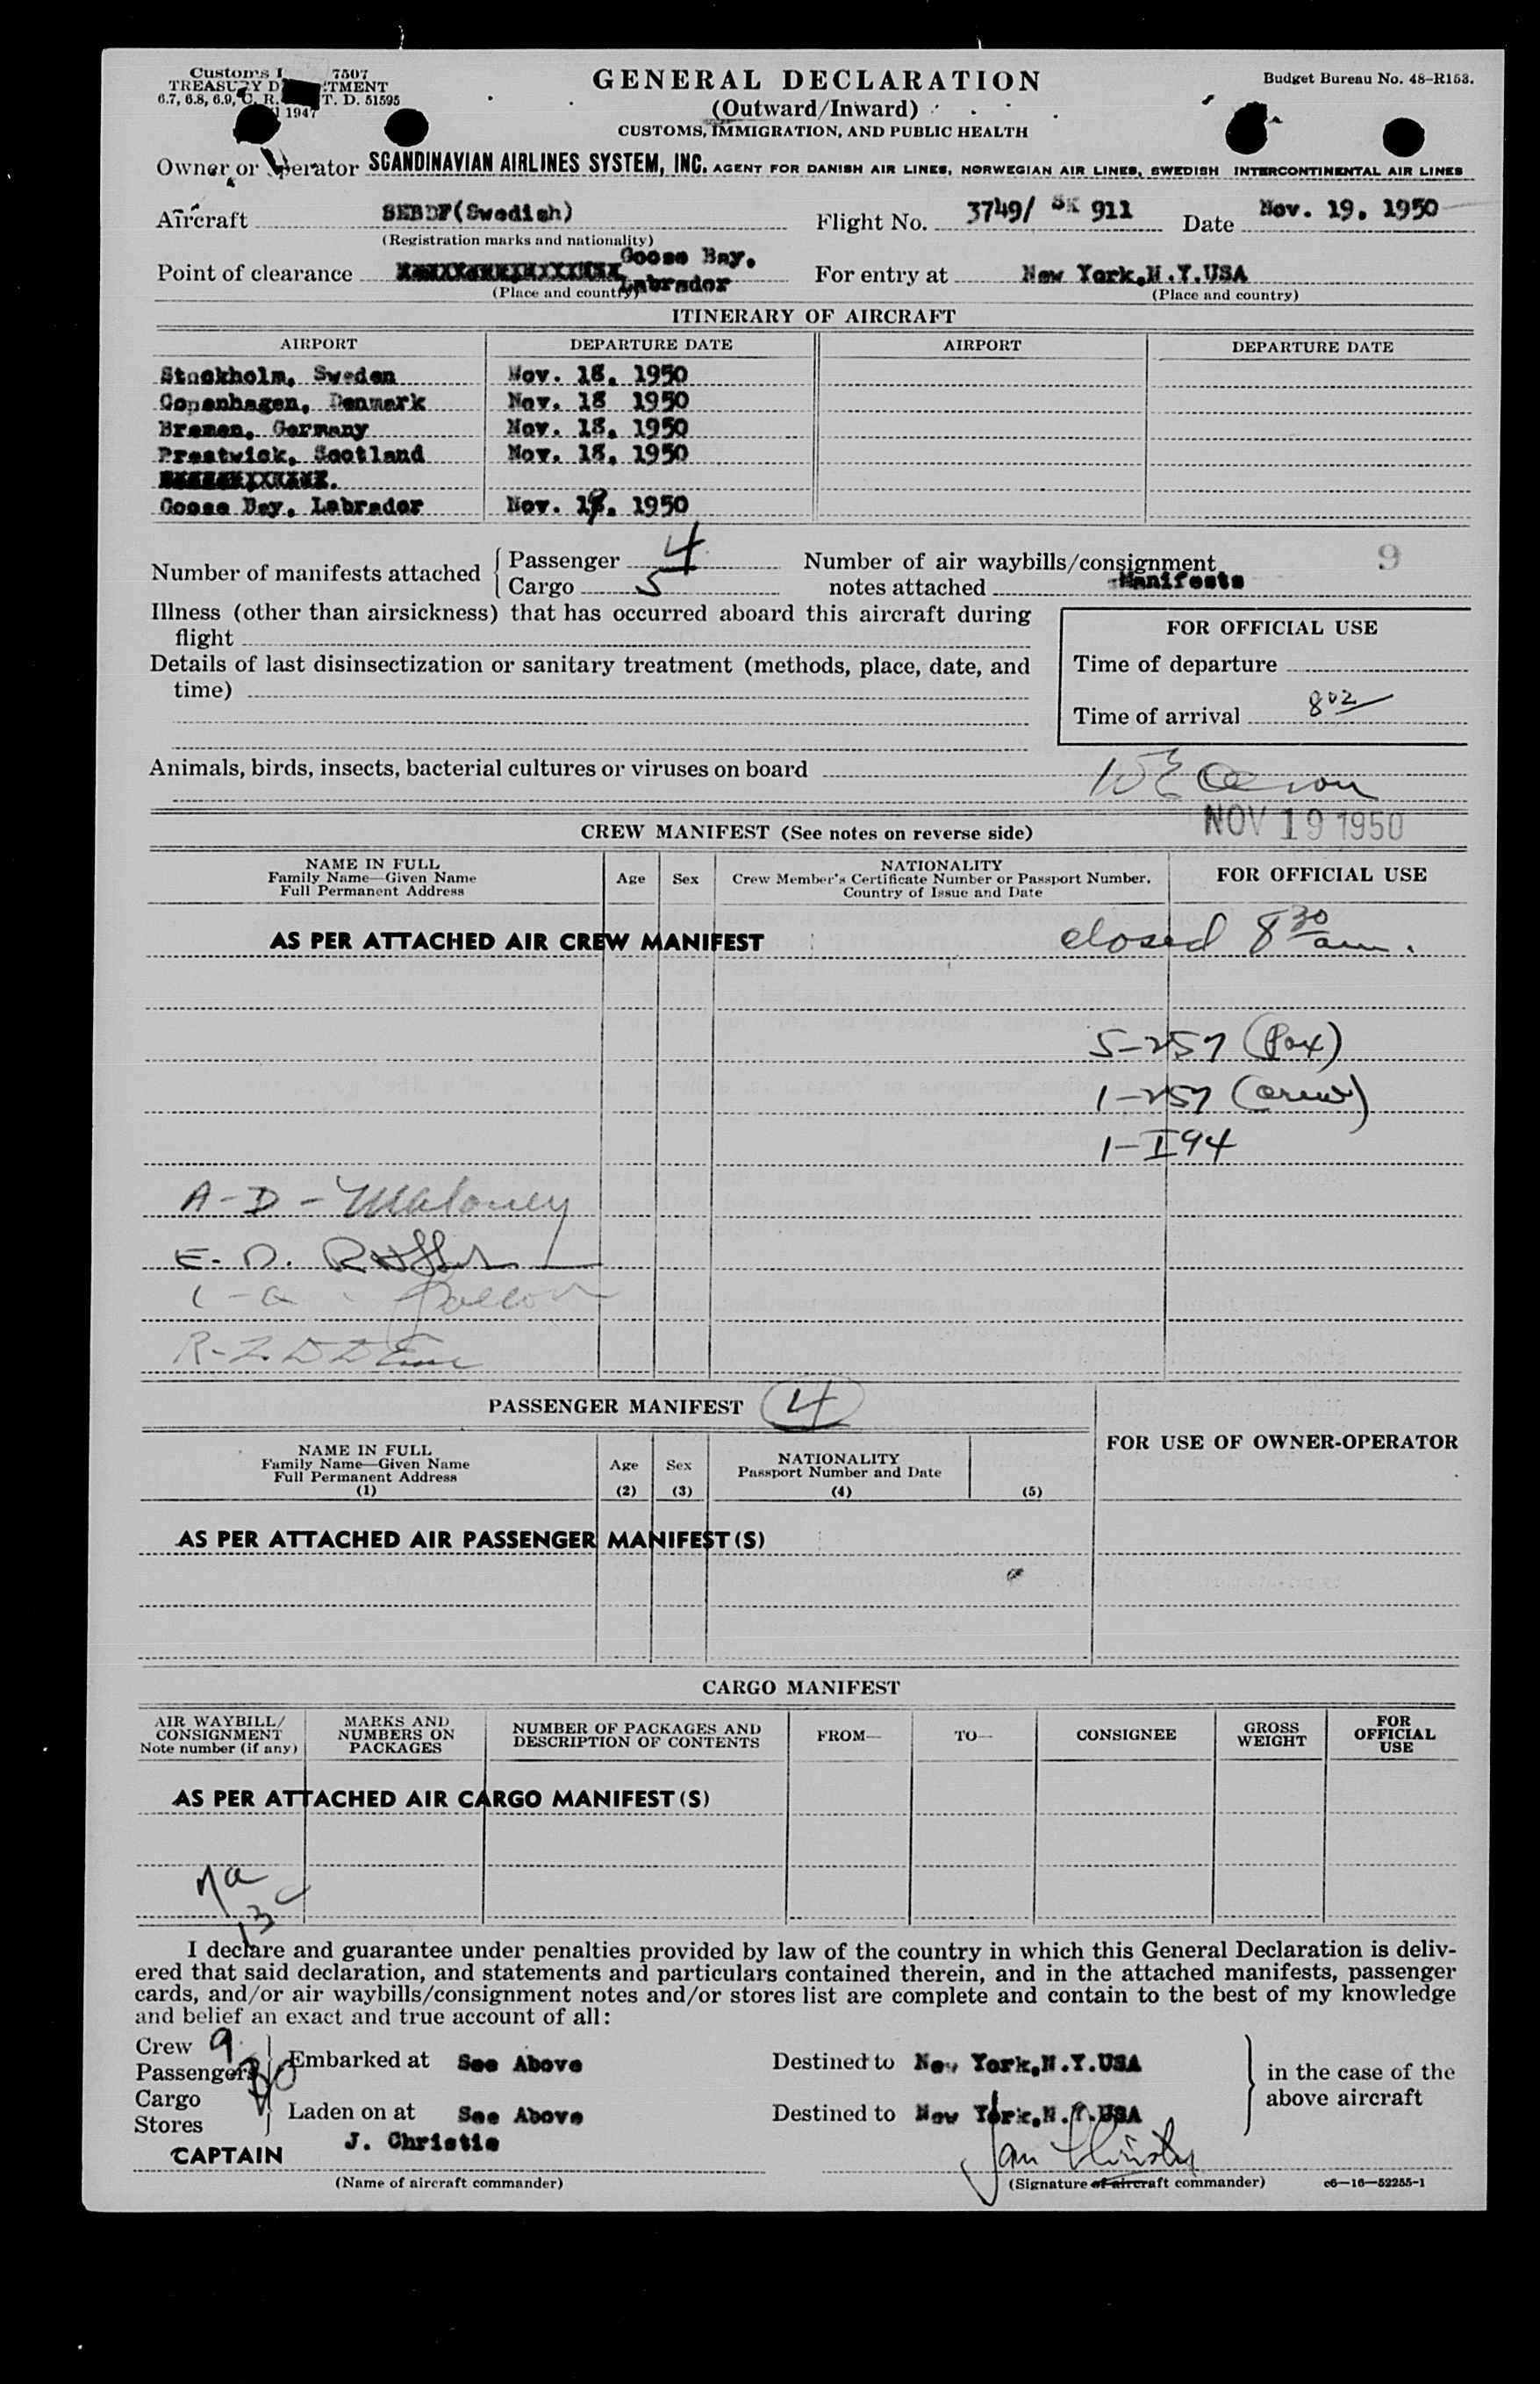 Customs 7507
TREASURY D TMENT
6.7, 6.8, 6.9, C. R. T. D. 51595
1947
GENERAL DECLARATION
(Outward/Inward)
CUSTOMS, IMMIGRATION, AND PUBLIC HEALTH
Budget Bureau No. 48-R153.
Owner or Operator SCANDINAVIAN AIRLINES SYSTEM, INC. AGENT FOR DANISH AIR LINES, NORWEGIAN AIR LINES, SWEDISH INTERCONTINENTAL AIR LINES
Aircraft SEBDF(Swedish) Flight No. 3749/ SK 911 Date Nov. 19, 1950
(Registration marks and nationality)
Point of clearance Goose Bay, Labrador For entry at New York,N.Y.USA
(Place and country) (Place and country)
ITINERARY OF AIRCRAFT
AIRPORT DEPARTURE DATE AIRPORT DEPARTURE DATE
Stockholm, Sweden Nov. 18, 1950
Copenhagen, Denmark Nov. 18 1950
Bremen, Germany Nov. 18, 1950
Prestwick, Scotland Nov. 18, 1950
Goose Bay, Labrador Nov. 19, 1950
Number of manifests attached { Passenger 4
Cargo 5
Number of air waybills/consignment 9
notes attached Manifests
Illness (other than airsickness) that has occurred aboard this aircraft during
flight
Details of last disinsectization or sanitary treatment (methods, place, date, and
time)
FOR OFFICIAL USE
Time of departure
Time of arrival 8 02
Animals, birds, insects, bacterial cultures or viruses on board
NOV 19 1950
CREW MANIFEST (See notes on reverse side)
NAME IN FULL
Family Name—Given Name
Full Permanent Address
Age Sex
NATIONALITY
Crew Member's Certificate Number or Passport Number,
Country of Issue and Date
FOR OFFICIAL USE
AS PER ATTACHED AIR CREW MANIFEST
closed 8 30 am.
5-257 (Pax)
1-257 (Crew)
1-I94
A-D-Maloney
PASSENGER MANIFEST 4
NAME IN FULL
Family Name—Given Name
Full Permanent Address
(1)
Age
(2)
Sex
(3)
NATIONALITY
Passport Number and Date
(4) (5)
FOR USE OF OWNER-OPERATOR
AS PER ATTACHED AIR PASSENGER MANIFEST(S)
CARGO MANIFEST
AIR WAYBILL/
CONSIGNMENT
Note number (if any)
MARKS AND
NUMBERS ON
PACKAGES
NUMBER OF PACKAGES AND
DESCRIPTION OF CONTENTS
FROM— TO— CONSIGNEE
GROSS
WEIGHT
FOR
OFFICIAL
USE
AS PER ATTACHED AIR CARGO MANIFEST(S)
I declare and guarantee under penalties provided by law of the country in which this General Declaration is deliv-
ered that said declaration, and statements and particulars contained therein, and in the attached manifests, passenger
cards, and/or air waybills/consignment notes and/or stores list are complete and contain to the best of my knowledge
and belief an exact and true account of all:
Crew 9
Passengers
Embarked at See Above Destined to New York,N.Y.USA
Cargo
Stores
Laden on at See Above Destined to New York,N.Y.USA
in the case of the
above aircraft
CAPTAIN J. Christie
(Name of aircraft commander) (Signature of aircraft commander) c6—16—52255-1